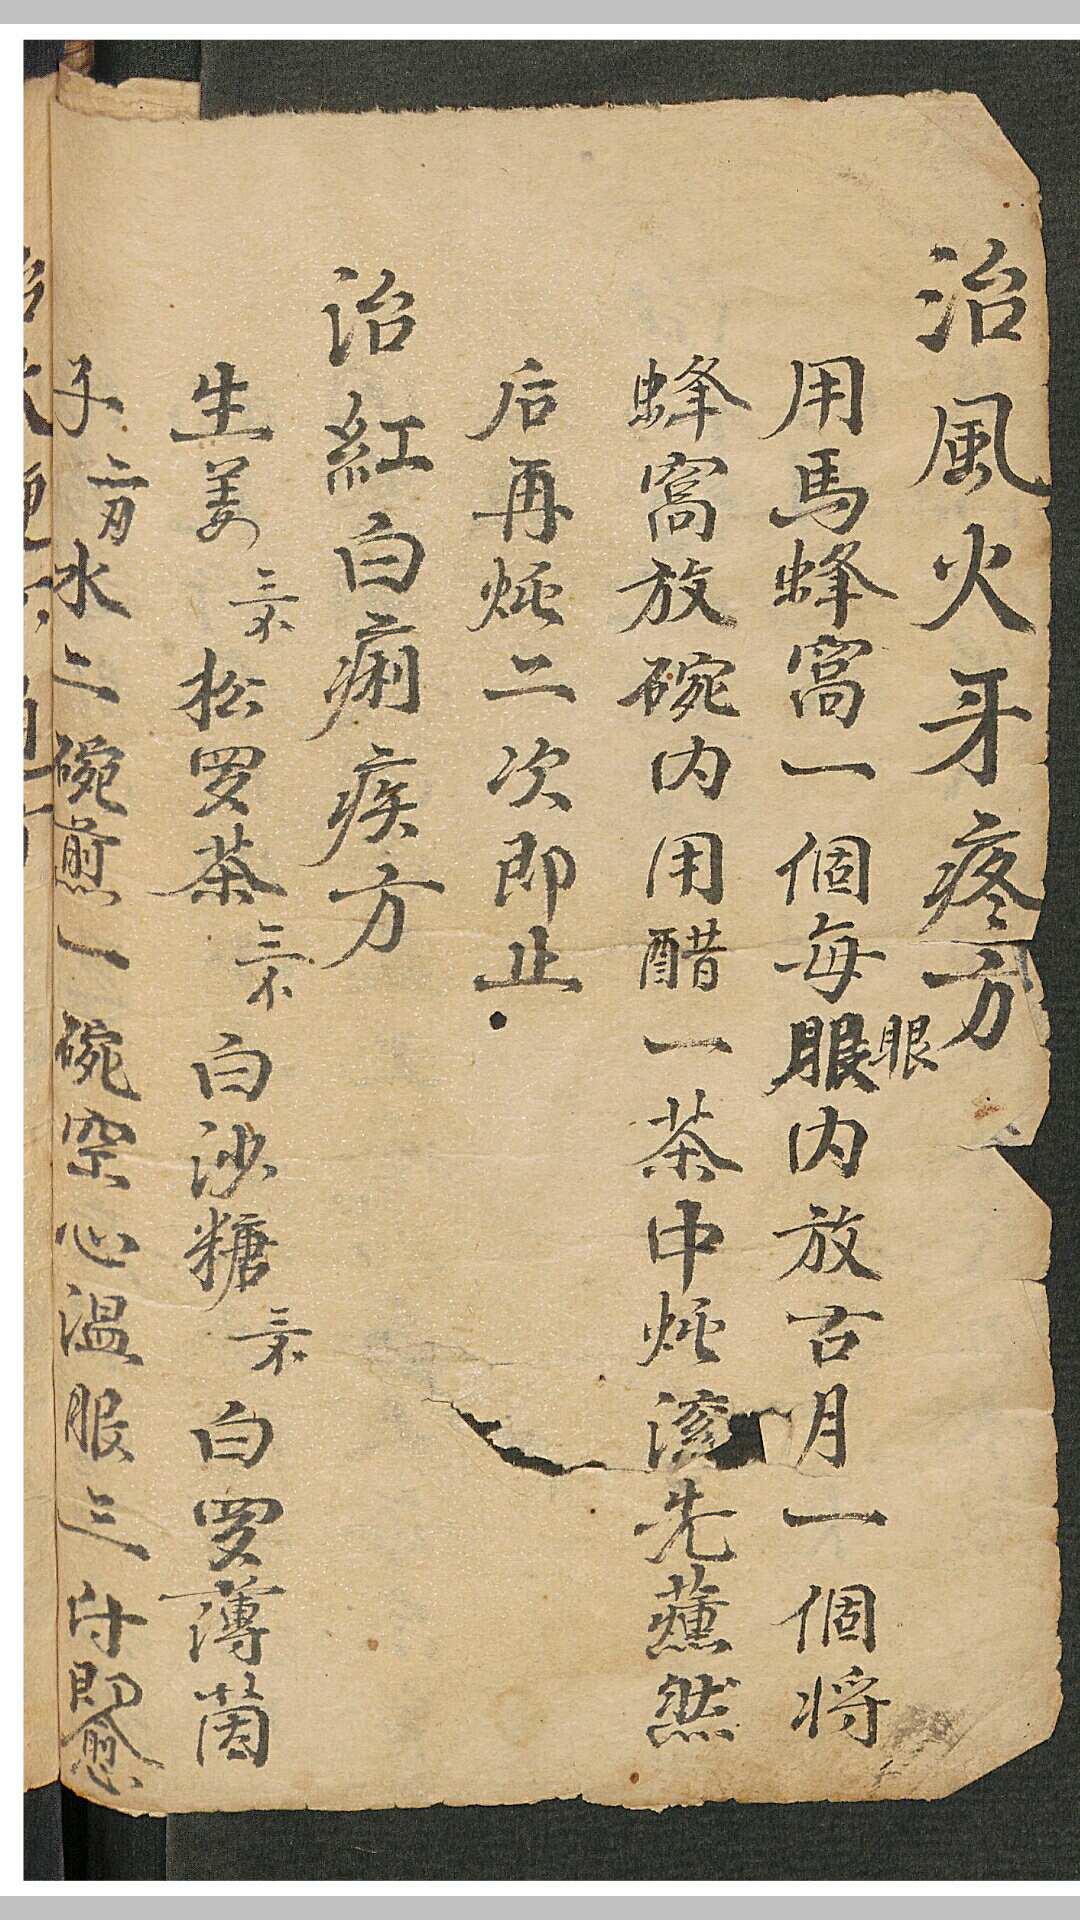 治風火牙疼方
用馬蜂窩一個每眼内放古月一個将
眼
蜂窩放碗内用醋一茶中炖滚先薰然
后再炖二次即止
治紅白痢疾方
生姜三 松罗茶三 白沙糖三 白罗薄茵
子 水二碗煎一碗空心温服三付即愈